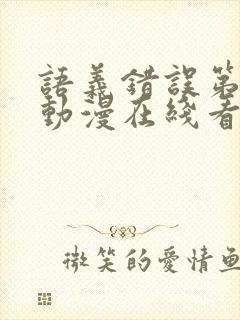 語義錯誤第
動漫在线看
微笑的愛情魚